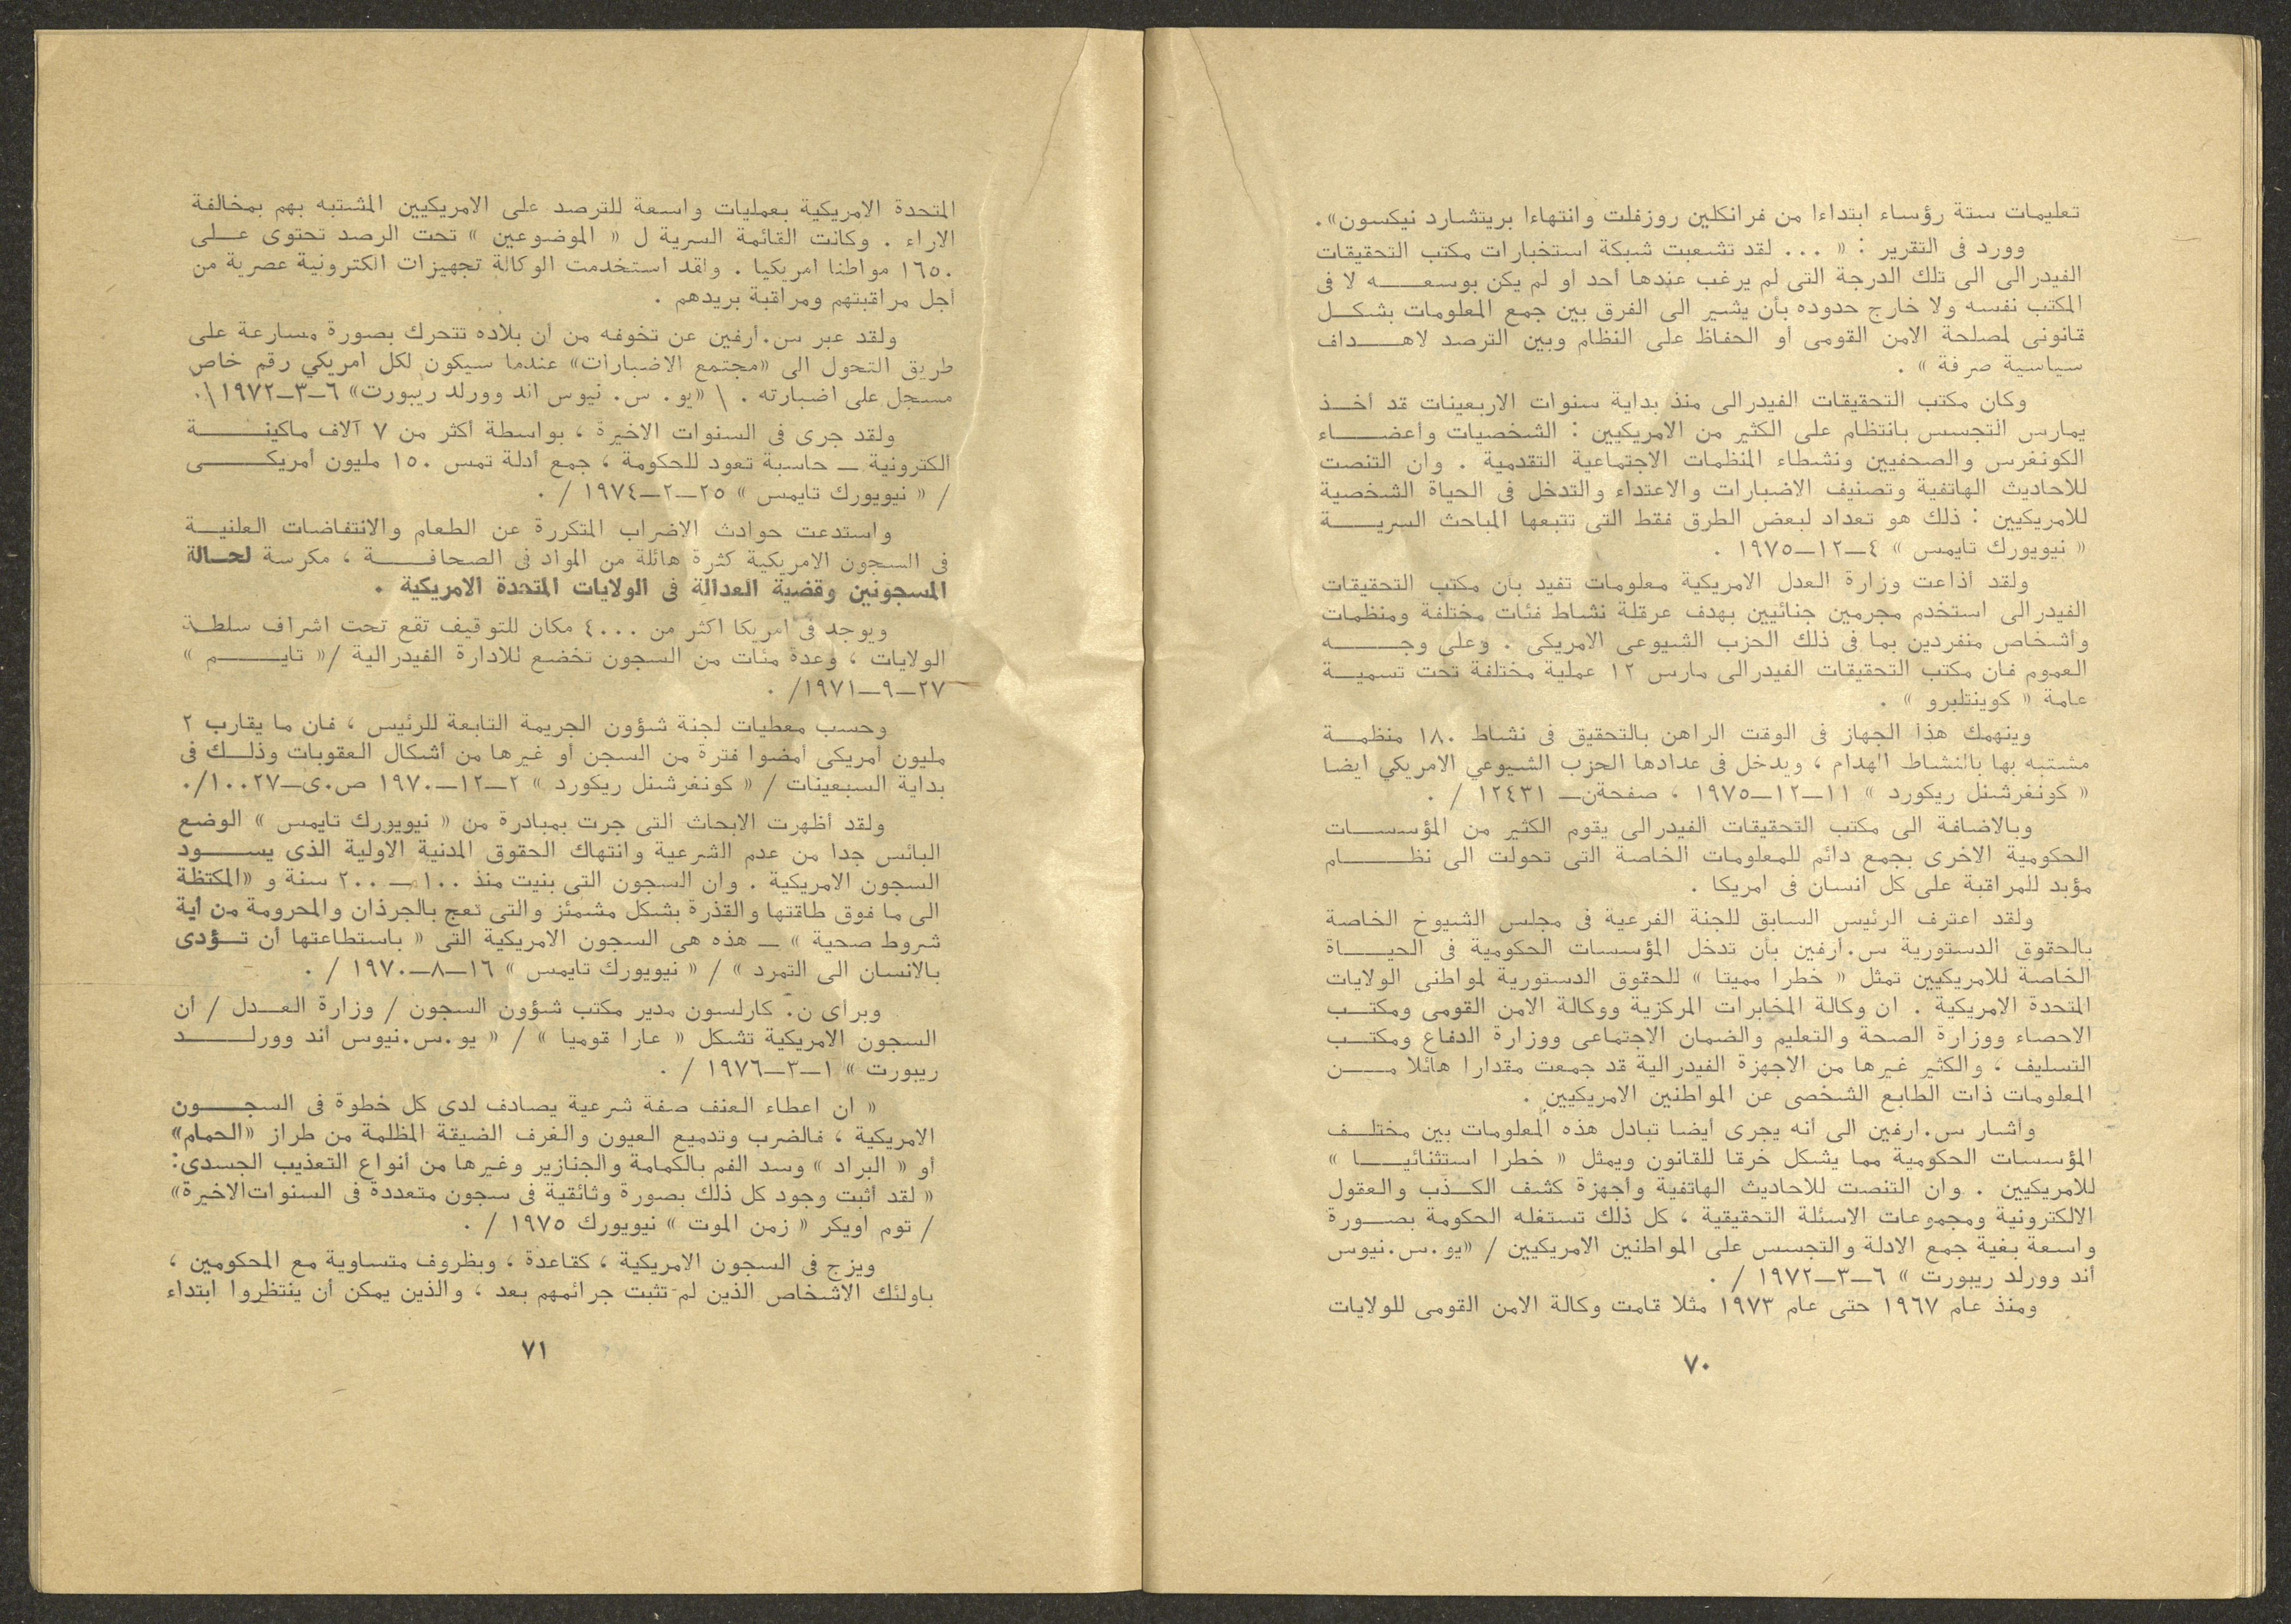 تعليمات ستة رؤساء ابتداءا من فرانكلين روزفلت وانتهاءا بريتشارد نيكسون».
وورد فى التقرير : « ... لقد تشعبت شبكة استخبارات مكتب التحقيقات
الفيدرالى الى تلك الدرجة التى لم يرغب عندها أحد أو لم يكن بوسعـــه لا فى
المكتب نفسه ولا خارج حدوده بأن يشير الى الفرق بين جمع المعلومات بشكــل
قانونى لمصلحة الامن القومى أو الحفاظ على النظام وبين الترصد لاهــداف
سياسية صرفة » .
وكان مكتب التحقيقات الفيدرالى منذ بداية سنوات الاربعينات قد أخــذ
يمارس التجسس بانتظام على الكثير من الامريكيين : الشخصيات وأعضــاء
الكونغرس والصحفيين ونشطاء المنظمات الاجتماعية التقدمية . وان التنصت
للاحاديث الهاتفية وتصنيف الاضبارات والاعتداء والتدخل فى الحياة الشخصية
للامريكيين : ذلك هو تعداد لبعض الطرق فقط التى تتبعها المباحث السريــة
« نيويورك تايمس » ٤—١٢—١٩٧٥ .
ولقد أذاعت وزارة العدل الامريكية معلومات تفيد بأن مكتب التحقيقات
الفيدرالى استخدم مجرمين جنائيين بهدف عرقلة نشاط فئات مختلفة ومنظمات
وأشخاص منفردين بما فى ذلك الحزب الشيوعى الامريكى . وعلى وجــــه
العموم فان مكتب التحقيقات الفيدرالى مارس ١٢ عملية مختلفة تحت تسميــة
عامة « كوينتلبرو » .
وينهمك هذا الجهاز فى الوقت الراهن بالتحقيق فى نشاط ١٨٠ منظمــة
مشتبه بها بالنشاط الهدام ، ويدخل فى عدادها الحزب الشيوعي الامريكي ايضا
« كونغرشنل ريكورد » ١١—١٢—١٩٧٥ ، صفحةن— ١٢٤٣١ / .
وبالاضافة الى مكتب التحقيقات الفيدرالى يقوم الكثير من المؤسســات
الحكومية الاخرى بجمع دائم للمعلومات الخاصة التى تحولت الى نظــــام
مؤبد للمراقبة على كل انسان فى امريكا .
ولقد اعترف الرئيس السابق للجنة الفرعية فى مجلس الشيوخ الخاصة
بالحقوق الدستورية س.أرفين بأن تدخل المؤسسات الحكومية فى الحيــاة
الخاصة للامريكيين تمثل « خطرا مميتا » للحقوق الدستورية لمواطنى الولايات
المتحدة الامريكية . ان وكالة المخابرات المركزية ووكالة الامن القومى ومكتــب
الاحصاء ووزارة الصحة والتعليم والضمان الاجتماعى ووزارة الدفاع ومكتــب
التسليف ، والكثير غيرها من الاجهزة الفيدرالية قد جمعت مقدارا هائلا مــن
المعلومات ذات الطابع الشخصى عن المواطنين الامريكيين .
وأشار س.ارفين الى أنه يجرى أيضا تبادل هذه المعلومات بين مختلــف
المؤسسات الحكومية مما يشكل خرقا للقانون ويمثل « خطرا استثنائيــا »
للامريكيين . وان التنصت للاحاديث الهاتفية وأجهزة كشف الكــذب والعقول
الالكترونية ومجموعات الاسئلة التحقيقية ، كل ذلك تستغله الحكومة بصــورة
واسعة بغية جمع الادلة والتجسس على المواطنين الامريكيين / «يو.س.نيوس
أند وورلد ريبورت » ٦—٣—١٩٧٢ / .
ومنذ عام ١٩٦٧ حتى عام ١٩٧٣ مثلا قامت وكالة الامن القومى للولايات
٧٠
المتحدة الامريكية بعمليات واسعة للترصد على الامريكيين المشتبه بهم بمخالفة
الاراء . وكانت القائمة السرية ل « الموضوعين » تحت الرصد تحتوى عــلى
١٦٥٠ مواطنا أمريكيا . ولقد استخدمت الوكالة تجهيزات الكترونية عصرية من
أجل مراقبتهم ومراقبة بريدهم .
ولقد عبر س.أرفين عن تخوفه من ان بلاده تتحرك بصورة مسارعة على
طريق التحول الى «مجتمع الاضبارات» عندما سيكون لكل امريكي رقم خاص
مسجل على اضبارته . \ «يو. س. نيوس اند وورلد ريبورت» ٦—٣—١٩٧٢\.
ولقد جرى فى السنوات الاخيرة ، بواسطة أكثر من ٧ آلاف ماكينــــة
الكترونية — حاسبة تعود للحكومة ، جمع أدلة تمس ١٥٠ مليون أمريكــــى
/ « نيويورك تايمس » ٢٥—٢—١٩٧٤ / .
واستدعت حوادث الاضراب المتكررة عن الطعام والانتفاضات العلنيــة
فى السجون الامريكية كثرة هائلة من المواد فى الصحافــــة ، مكرسة لحــالة
المسجونين وقضية العدالة فى الولايات المتحدة الامريكية .
ويوجد فى امريكا اكثر من ٤٠٠٠ مكان للتوقيف تقع تحت اشراف سلطــة
الولايات ، وعدة مئات من السجون تخضع للادارة الفيدرالية /« تايــــم »
٢٧—٩—١٩٧١/ .
وحسب معطيات لجنة شؤون الجريمة التابعة للرئيس ، فان ما يقارب ٢
مليون أمريكى أمضوا فترة من السجن أو غيرها من أشكال العقوبات وذلــك فى
بداية السبعينات / « كونغرشنل ريكورد » ٢—١٢—١٩٧٠ ص.ى—١٠٠٢٧/.
ولقد أظهرت الابحاث التى جرت بمبادرة من « نيويورك تايمس » الوضع
البائس جدا من عدم الشرعية وانتهاك الحقوق المدنية الاولية الذى يســــود
السجون الامريكية . وان السجون التى بنيت منذ ١٠٠ — ٢٠٠ سنة و «المكتظة
الى ما فوق طاقتها والقذرة بشكل مشمئز والتى تعج بالجرذان والمحرومة من أية
شروط صحية » — هذه هى السجون الامريكية التى « باستطاعتها أن تــؤدى
بالانسان الى التمرد » / « نيويورك تايمس » ١٦—٨—١٩٧٠ / .
وبرأى ن. كارلسون مدير مكتب شؤون السجون / وزارة العــدل / أن
السجون الامريكية تشكل « عارا قوميا » / « يو.س.نيوس أند وورلــــد
ريبورت » ١—٣—١٩٧٦ / .
« ان اعطاء العنف صفة شرعية يصادف لدى كل خطوة فى السجــــون
الامريكية ، فالضرب وتدميع العيون والغرف الضيقة المظلمة من طراز «الحمام»
أو « البراد » وسد الفم بالكمامة والجنازير وغيرها من أنواع التعذيب الجسدى:
« لقد أثبت وجود كل ذلك بصورة وثائقية فى سجون متعددة فى السنوات الاخيرة»
/ توم اويكر « زمن الموت » نيويورك ١٩٧٥ / .
ويزج فى السجون الامريكية ، كقاعدة ، وبظروف متساوية مع المحكومين ،
باولئك الاشخاص الذين لم تثبت جرائمهم بعد ، والذين يمكن أن ينتظروا ابتداء
٧١